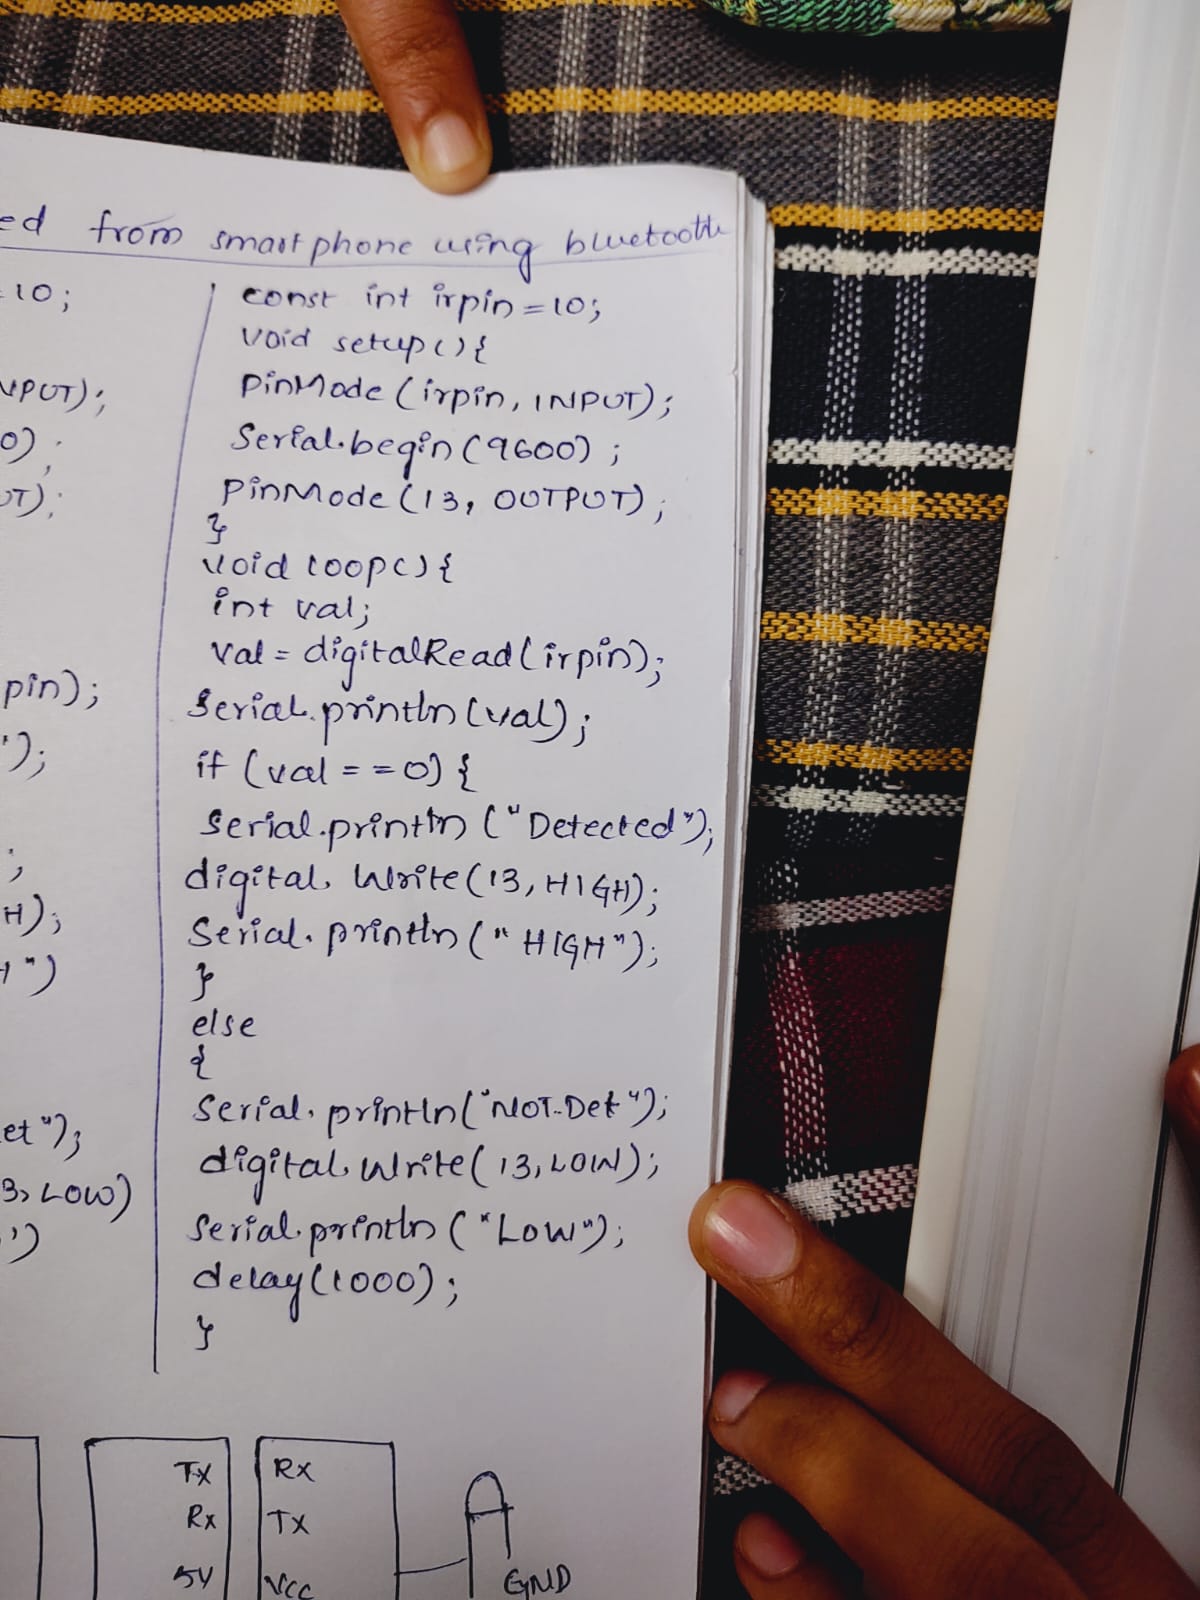 ed from smartphone using bluetooth
10;
NPUT);
0);
UT);
pin);
");
;
H);
")
et");
3, LOW)
")
const int irpin=10;
void setup(){
PinMode (irpin, INPUT);
Serial.begin(9600);
PinMode (13, OUTPUT);
}
void loop(){
int val;
val = digitalRead(irpin);
Serial.println(val);
if (val == 0) {
Serial.println ("Detected");
digital Write(13, HIGH);
Serial. println ("HIGH");
}
else
{
Serial. println("NOT-Det");
digital Write( 13, LOW);
Serial.println ("Low");
delay(1000);
}
TX RX
Rx TX
5V VCC
GND